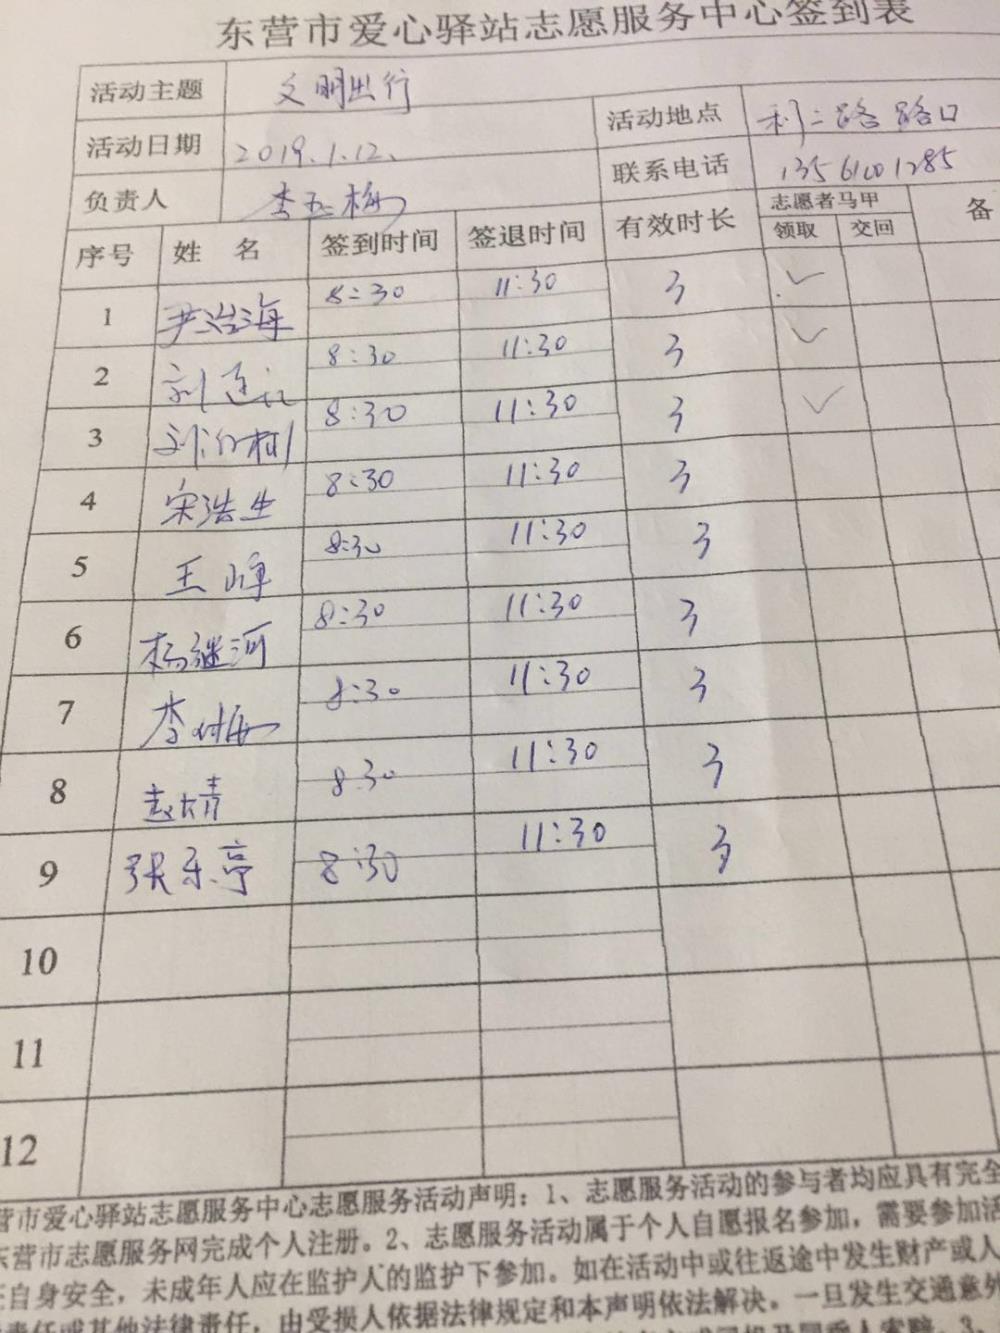 东营市爱心驿站志愿服务中心签到表
活动主题 文明出行
活动日期 2019.1.12. 活动地点 利二路路口
负责人 李 梅 联系电话 13561001285
序号 姓 名 签到时间 签退时间 有效时长 志愿者马甲 备
领取 交回
1 尹浩海 8:30 11:30 3 ✓
2 刘 8:30 11:30 3 ✓
3 刘 树 8:30 11:30 3 ✓
4 宋浩生 8:30 11:30 3
5 王峰 8:30 11:30 3
6 杨继河 8:30 11:30 3
7 李 梅 8:30 11:30 3
8 赵婧 8:30 11:30 3
9 张乐亭 8:30 11:30 3
10
11
12
营市爱心驿站志愿服务中心志愿服务活动声明：1、志愿服务活动的参与者均应具有完全
东营市志愿服务网完成个人注册。2、志愿服务活动属于个人自愿报名参加，需要参加活
自身安全，未成年人应在监护人的监护下参加。如在活动中或往返途中发生财产或人
责任或其他法律责任，由受损人依据法律规定和本声明依法解决。一旦发生交通意外